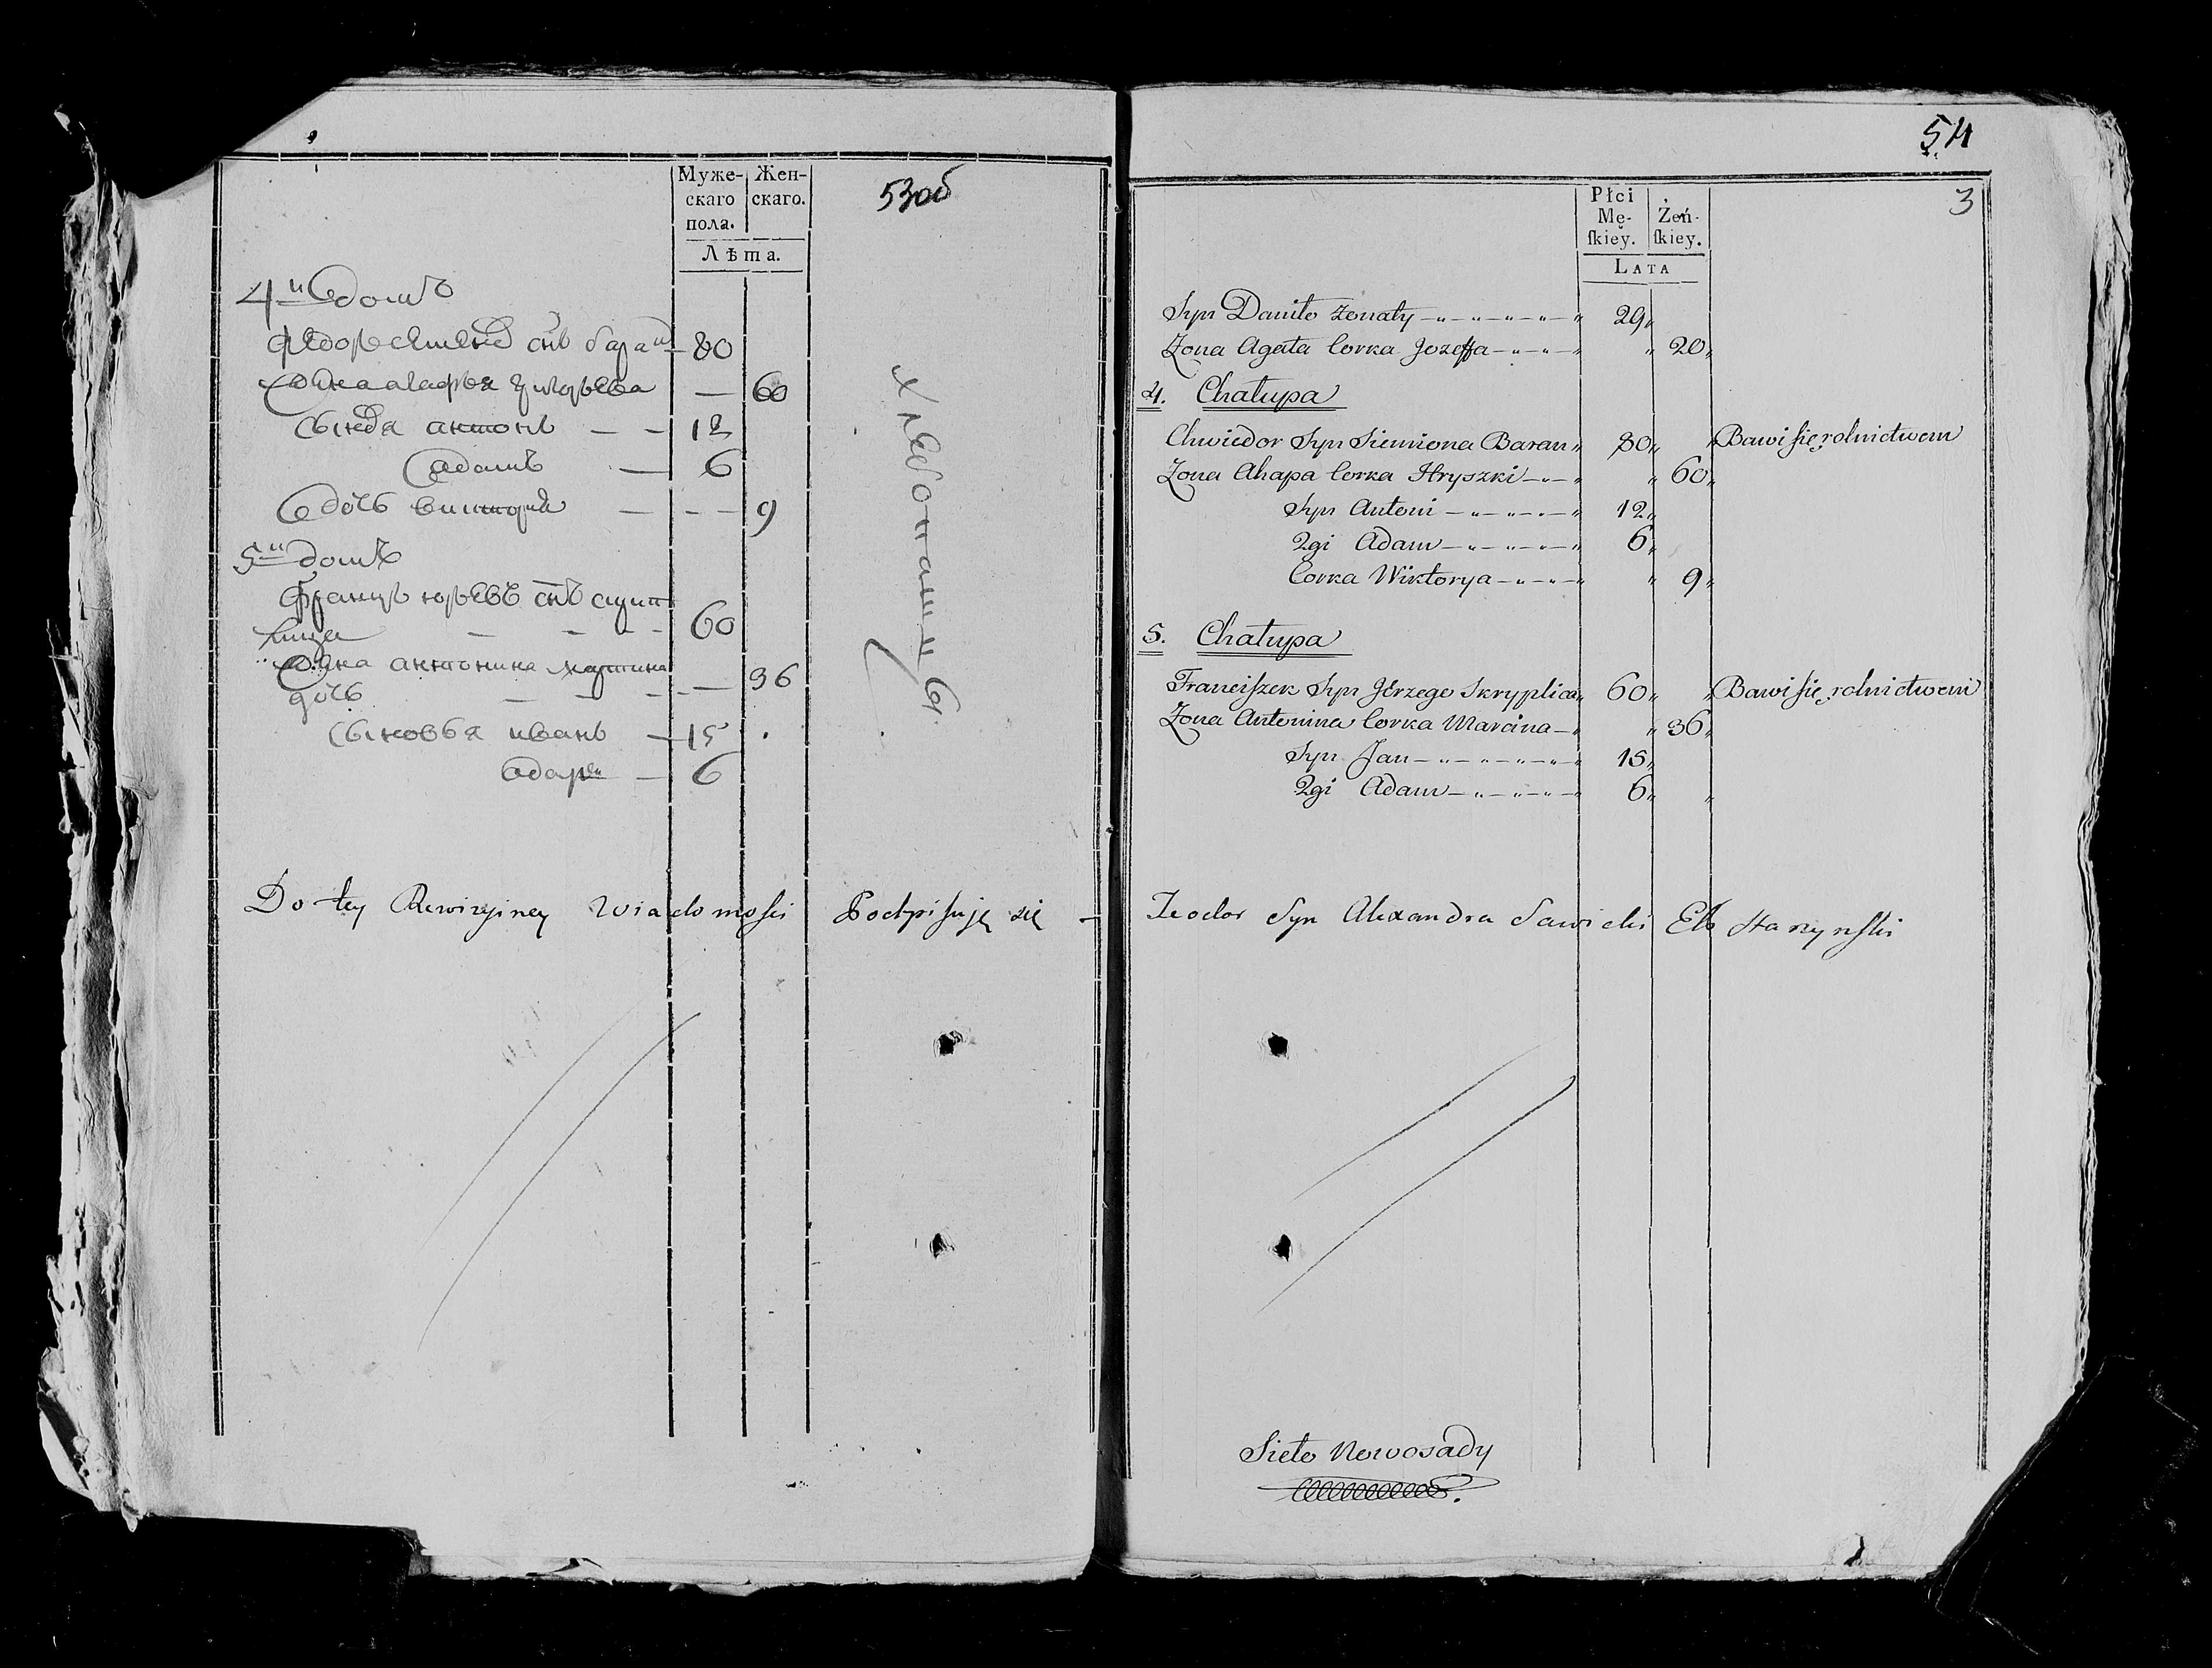 53об
Муже-
скаго
пола.
Жен-
скаго.
Лѣта.
4й домъ
Федоръ Семенов снъ баран 80
жена агафья григорьева — 60
сыновья антонъ — — 12
адамъ — 6
дочь виктория — — — 9
5й домъ
Францъ юрьевъ снъ скрип
лица — — — — 60
жена антонина мартина
дочь — — — — — 36
сыновья иванъ — 15
адам — 6
хлебопашцы
Do tey Rewizyiney Wiadomości Podpisuję się —
54
3
Płci
Mę-
ſkiey.
Żeń-
ſkiey.
LATA
Syn Daniło żonaty 29
Zona Agata Corka Jozeffa 20
4. Chałupa
Chwiedor Syn Siemiona Baran 80 Bawi się rolnictwem
Zona Ahapa Corka Hryszki 60
Syn Antoni 12
2gi Adam 6
Corka Wiktorya 9
5. Chałupa
Franciszek Syn Jerzego Skryplica 60 Bawi się rolnictwem
Zona Antonina Corka Marcina 36
Syn Jan 15
2gi Adam 6
Teodor Syn Alexandra Sawicki Starzynski
Sieło Nowosady